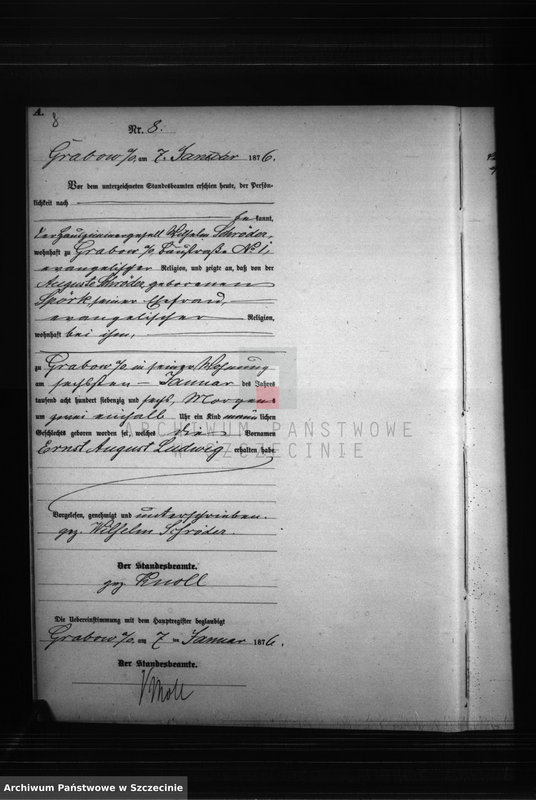 A.
8
Nr. 8.
Grabow a/O. am 7. Januar 1876.
Vor dem unterzeichneten Standesbeamten erschien heute, der Persön-
lichkeit nach
be kannt,
der Hauszimmergesell Wilhelm Schröder,
wohnhaft zu Grabow a/O. Baustraße No 1,
evangelischer Religion, und zeigte an, daß von der
Auguste Schröder, geborenen
Spörk, seiner Ehefrau,
evangelischer Religion,
wohnhaft bei ihm,
zu Grabow a/O. in seiner Wohnung
am sechsten Januar des Jahres
tausend acht hundert siebenzig und sechs, Morgens
um zwei einhalb Uhr ein Kind männlichen
Geschlechts geboren worden sei, welches die Vornamen
Ernst August Ludwig erhalten habe
Vorgelesen, genehmigt und unterschrieben.
gez. Wilhelm Schröder.
Der Standesbeamte.
gez. Knoll
Die Uebereinstimmung mit dem Hauptregister beglaubigt
Grabow a/O. am 7 ten Januar 1876.
Der Standesbeamte.
Knoll
ARCHIWUM PAŃSTWOWE
W SZCZECINIE
Archiwum Państwowe w Szczecinie